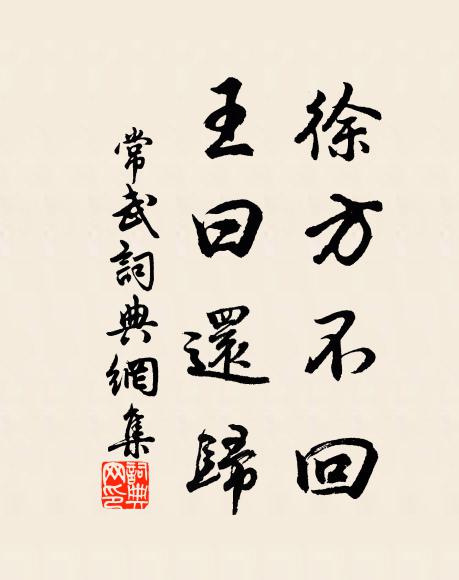 徐方不回
王曰還歸
常武詞典網集
詞典網印